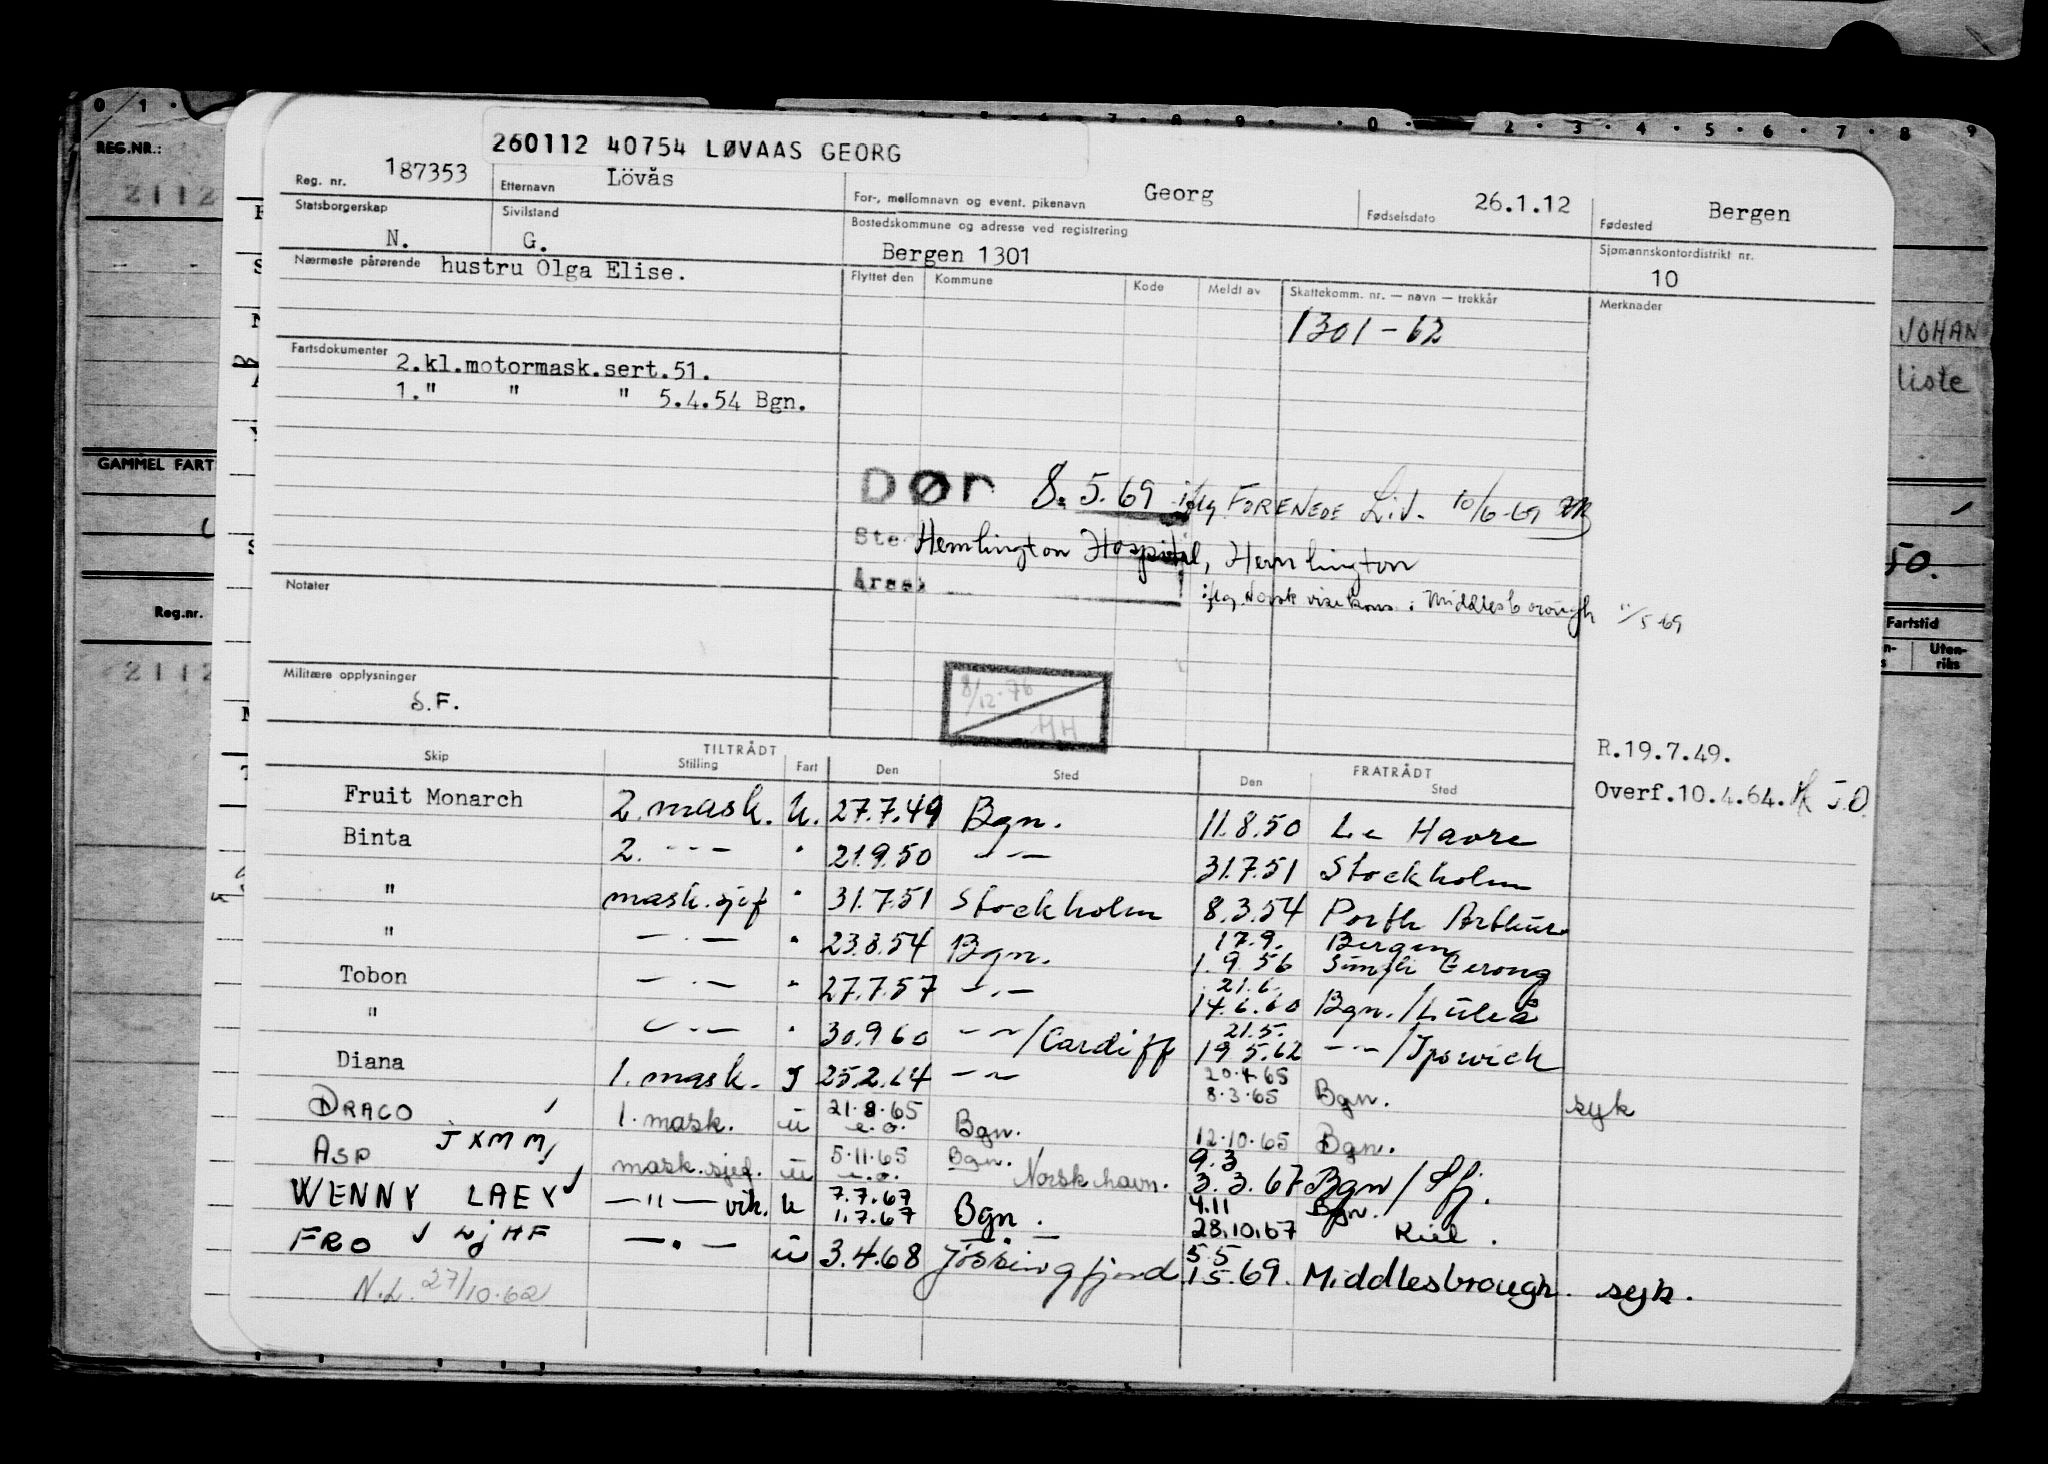 0 1 .
2 . 3 . 4 . 5 . 6 . 7 . 8 9
REG.NR.:
2112
260112 40754 LØVAAS GEORG
Reg. nr. 187353 Etternavn Lövås For-, mellomnavn og event. pikenavn Georg Fødselsdato 26.1.12 Fødested Bergen
Statsborgerskap N. Sivilstand G. Bostedskommune og adresse ved registrering Bergen 1301 Sjømannskontordistrikt nr. 10
Nærmeste pårørende hustru Olga Elise. Flyttet den Kommune Kode Meldt av Skattekomm. nr. — navn — trekkår Merknader
1301-62
JOHAN
liste
Fartsdokumenter 2.kl.motormask.sert.51.
1." " " 5.4.54 Bgn.
GAMMEL FART
DØD 8.5.69 iflg FORENEDE Liv. 10/6-69
Hemlington Hospital, Hemlington
iflg. Norsk visekons. i Middlesborough 11/5-69
50.
Notater
Reg.nr.
Fartstid
Uten-
riks
2112
Militære opplysninger S.F.
8/12-76
HH
R.19.7.49.
Overf.10.4.64. J.O.
TILTRÅDT FRATRÅDT
Skip Stilling Fart Den Sted Den Sted
Fruit Monarch 2. mask. U. 27.7.49 Bgn. 11.8.50 Le Havre
Binta 2. -"- " 21.9.50 -"- 31.7.51 Stockholm
" mask.sjef " 31.7.51 Stockholm 8.3.54 Porth Arthur
17.9. Bergen
" -"- " 23.8.54 Bgn. 1.9.56 Sungei Gerong
21.6.
Tobon -"- " 27.7.57 -"- 14.6.60 Bgn./Luleå
21.5.
" -"- " 30.9.60 -"-/Cardiff 19.5.62 -"-/Ipswich
20.4.65
Diana 1. mask. I 25.2.64 -"- 8.3.65 Bgn. syk
DRACO 1. mask. u 21.8.65 e.o. Bgn. 12.10.65 Bgn.
JXMM
ASP mask.sjef. u 5.11.65 e.o. Bgn. Norsk havn. 9.3
3.3.67 Bgn/Sfj.
WENNY LAEY -"- vik. u 7.7.67 4.11 Bgn.
1.7.67 Bgn. 28.10.67 Kiel.
FRO LJHF -"- u 3.4.68 Jössingfjord 5.5
1.5.69. Middlesbrough. syk.
N.L. 27/10.62